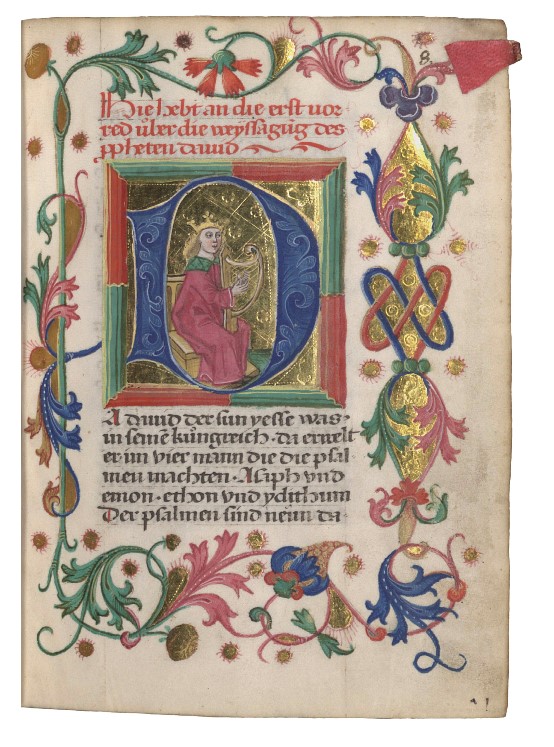 8.
Hie hebt an die erst vor
red über die weyssagūg des
ppheten dauid
DA dauid der sun yesse was
in seinē küngreich · da erwelt
er im vier mann die die psal
men machten · Asaph vnd
emon · ethon vnd ydithum
Der psalmen sind neün da